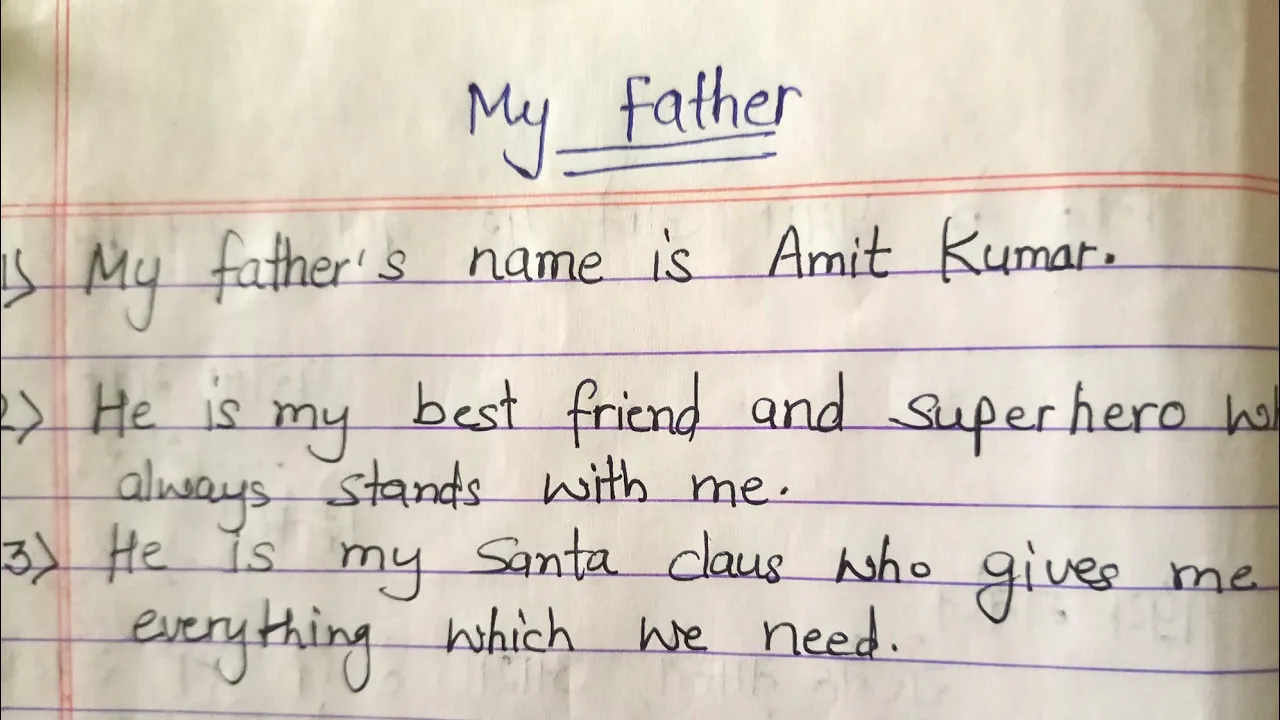 My father
1) My father's name is Amit Kumar.
2) He is my best friend and superhero
always stands with me.
3) He is my Santa claus who gives me
everything which we need.